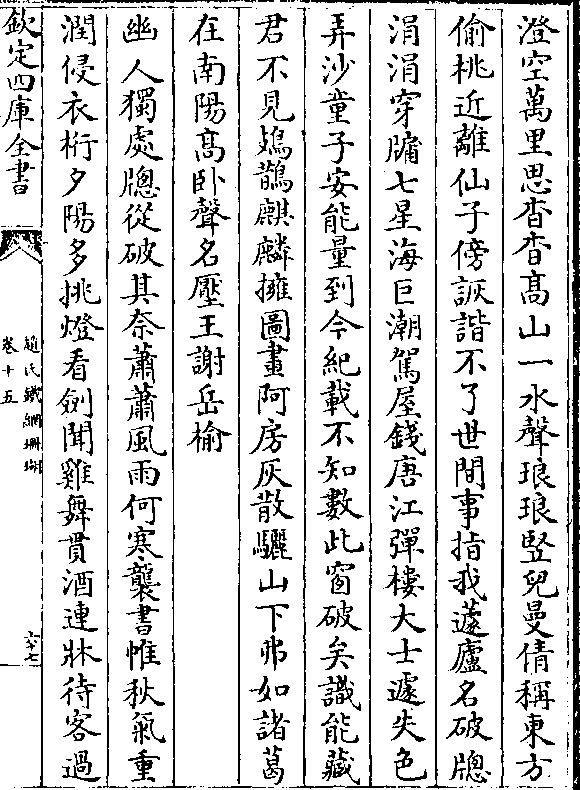 澄空萬里思杳杳高山一水聲琅琅竪兒曼倩稱東方
偷桃近離仙子傍詼諧不了世間事指我蘧廬名破牕
涓涓穿牖七星海巨潮駕屋錢唐江彈樓大士遽失色
弄沙童子安能量到今紀載不知數此窗破矣識能藏
君不見鳷鵲麒麟擁圖畫阿房灰散驪山下弗如諸葛
在南陽高卧聲名壓王謝岳榆
幽人獨處牕從破其奈蕭蕭風雨何寒襲書帷秋氣重
潤侵衣桁夕陽多挑燈看劍聞雞舞貰酒連牀待客過
欽定四庫全書
趙氏鐵網珊瑚
卷十五
六十七